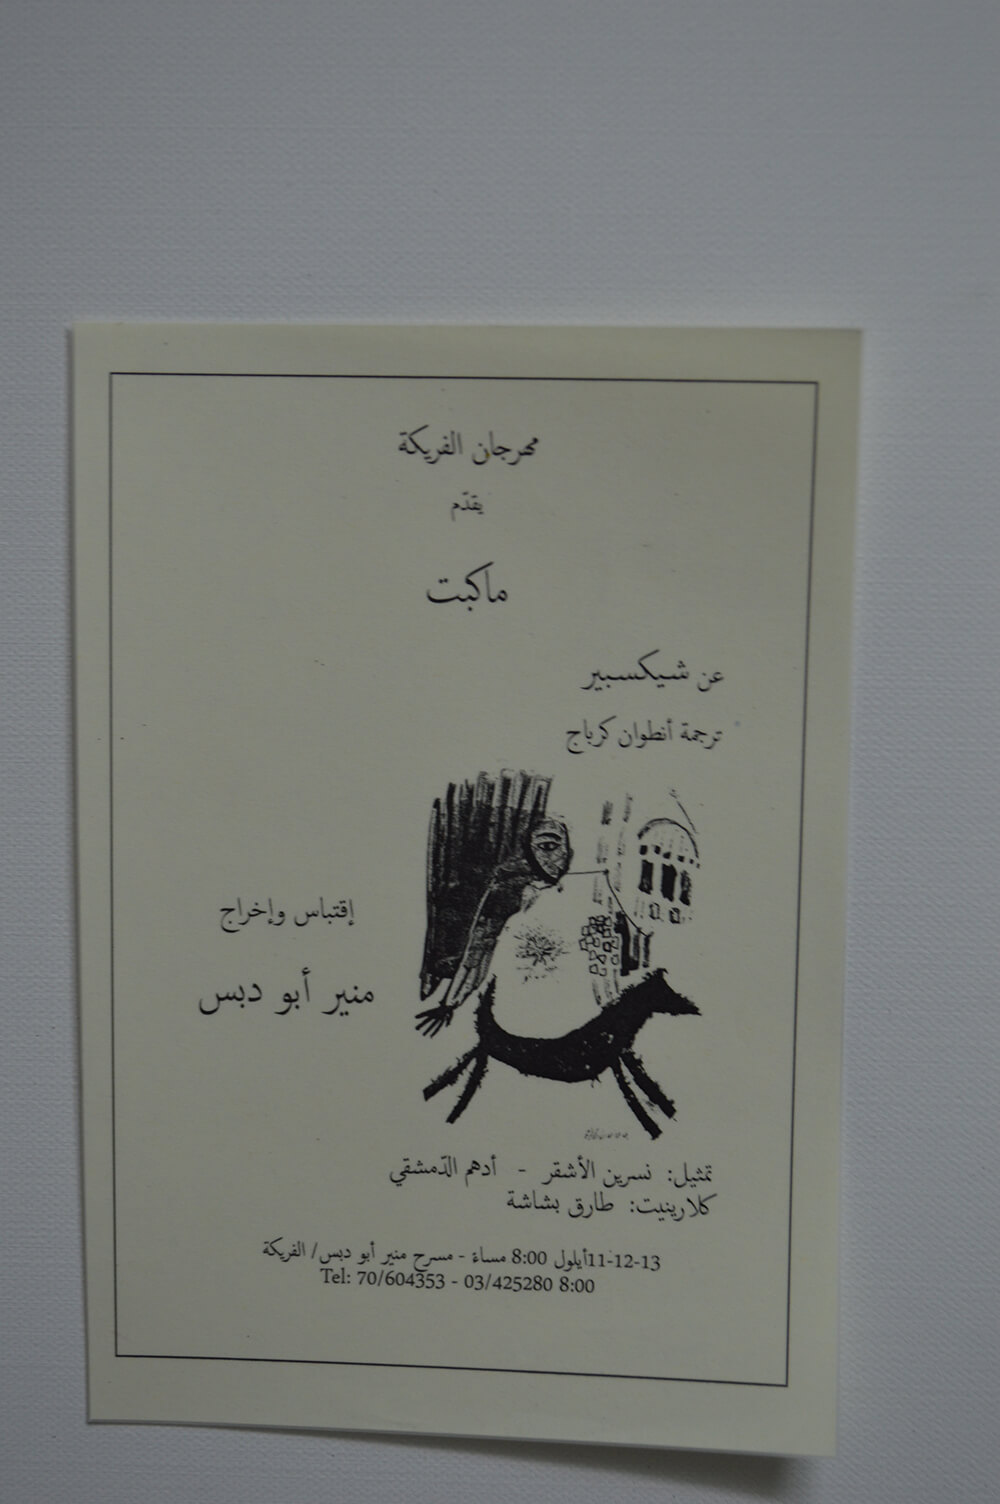 مهرجان الفريكة
يقدّم
ماكبت
عن شيكسبير
ترجمة أنطوان كرباج
إقتباس وإخراج
منير أبو دبس
تمثيل: نسرين الأشقر - أدهم الدّمشقي
كلارينيت: طارق بشاشة
11-12-13أيلول 8:00 مساءً - مسرح منير أبو دبس/ الفريكة
Tel: 70/604353 - 03/425280 8:00